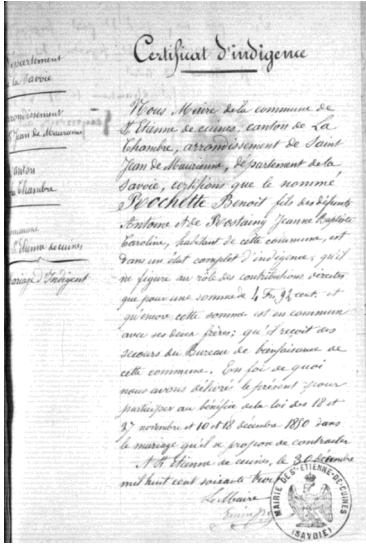 Certificat d'indigence
Département
de la Savoie
arrondissement
St Jean de Maurienne
Canton
La Chambre
Commune
St Etienne de cuines
Mariage d'Indigent
Nous Maire de la commune de
St Etienne de cuines, canton de La
Chambre, arrondissement de Saint
Jean de Maurienne, département de la
Savoie, certifions que le nommé
Rochette Benoit fils des défunts
Antoine et de Rostaing Jeanne Baptiste
Caroline, habitant de cette commune, est
dans un état complet d'indigence; qu'il
ne figure au rôle des contributions directes
que pour une somme de 4 Fr, 92 cent. et
qu'encore cette somme est en commun
avec ses deux frères; qu'il reçoit des
secours du Bureau de bienfaisance de
cette commune. En foi de quoi
nous avons délivré le présent pour
participer au bénéfice de la loi des 18 et
27 novembre et 10 et 18 décembre 1850 dans
le mariage qu'il se propose de contracter
A St Etienne de cuines, le 30 décembre
mil huit cent soixante trois
Le Maire
MAIRIE DE ST-ETIENNE-DE-CUINES
(SAVOIE)